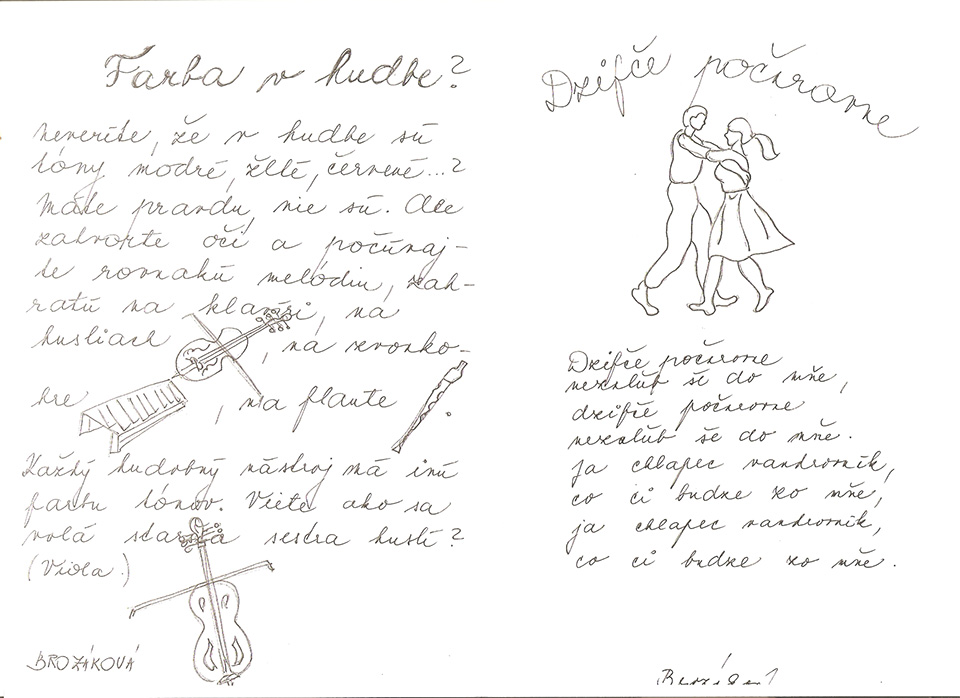 Farba v hudbe?
Neveríte, že v hudbe sú
tóny modré, žlté, červené...?
Máte pravdu, nie sú. Ale
zatvorte oči a počúvaj-
te rovnakú melódiu, zah-
ratú na klavíri, na
husliach , na zvonko-
hre , na flaute .
Každý hudobný nástroj má inú
farbu tónov. Viete ako sa
volá staršia sestra huslí?
(Viola.)
BROZÁKOVÁ
Dzifče počarovne
Dzifče počarovne
nezalub še do mňe,
dzifče počarovne
nezalub še do mňe.
ja chlapec vandrovník,
co ci budze zo mňe,
ja chlapec vandrovník,
co ci budze zo mňe.